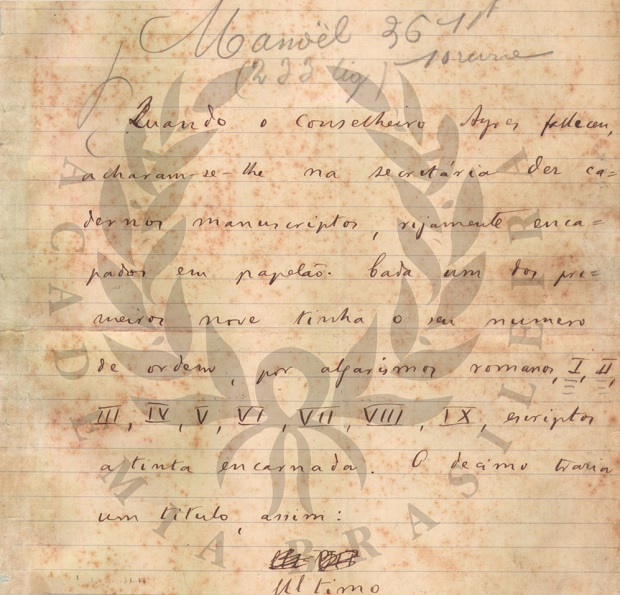 Manoël 36
(233 lig)
Quando o Conselheiro Ayres falleceu,
acharam-se-lhe na secretária dez ca=
dernos manuscriptos, rijamente enca=
pados em papelão. Cada um dos pri=
meiros nove tinha o seu numero
de ordem, por algarismos romanos, I, II,
III, IV, V, VI, VII, VIII, IX, escriptos
a tinta encarnada. O decimo trazia
um titulo, assim:
Ultimo
ACADEMIA BRASILEIRA